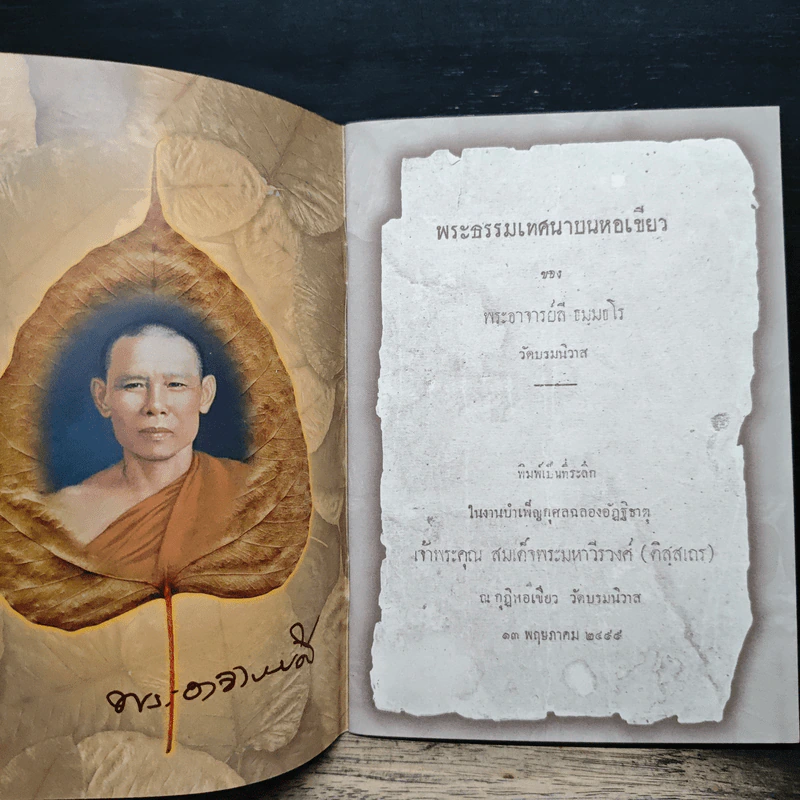 พระอาจารย์ลี
พระธรรมเทศนาบนหอเขียว
ของ
พระอาจารย์ลี ธมฺมธโร
วัดบรมนิวาส
พิมพ์เป็นที่ระลึก
ในงานบำเพ็ญกุศลฉลองอัฏฐิธาตุ
เจ้าพระคุณ สมเด็จพระมหาวีรวงศ์ (ติสฺสเถร)
ณ กุฏิหอเขียว วัดบรมนิวาส
๑๓ พฤษภาคม ๒๔๙๙